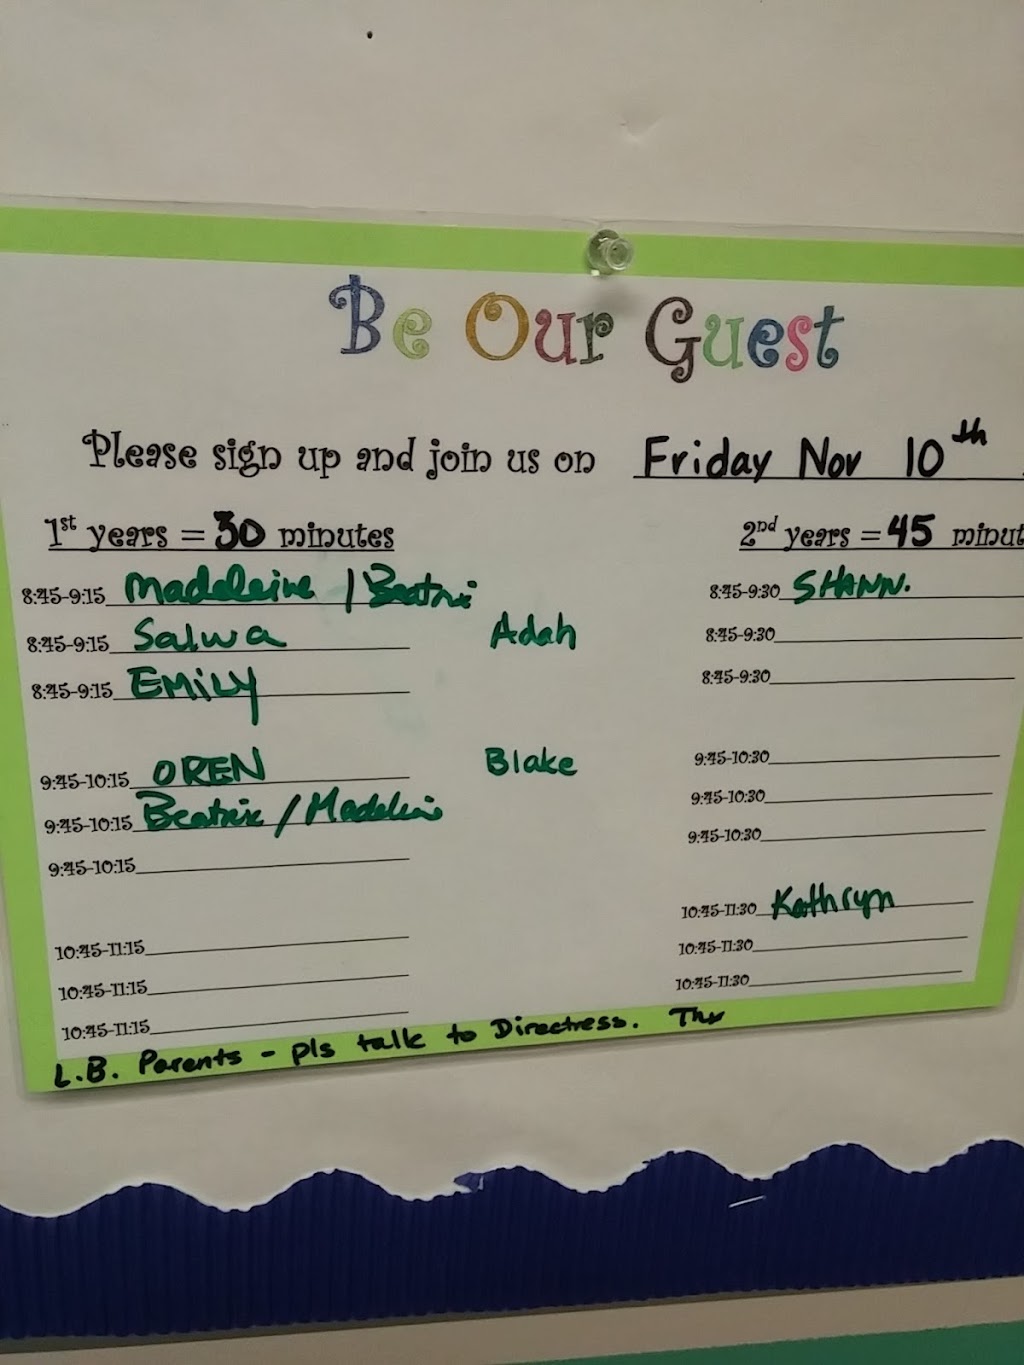 Be Our Guest
Please sign up and join us on Friday Nov 10th
1st years = 30 minutes
2nd years = 45 minut
8:45-9:15 Madeleine / Beatrix
8:45-9:30 SHANN.
8:45-9:15 Salwa Adah
8:45-9:30
8:45-9:15 EMILY
8:45-9:30
9:45-10:15 OREN Blake
9:45-10:30
9:45-10:15 Beatrix / Madeleine
9:45-10:30
9:45-10:15
9:45-10:30
10:45-11:30 Kathryn
10:45-11:15
10:45-11:30
10:45-11:15
10:45-11:30
10:45-11:15
L.B. Parents - pls talk to Directress. Thx